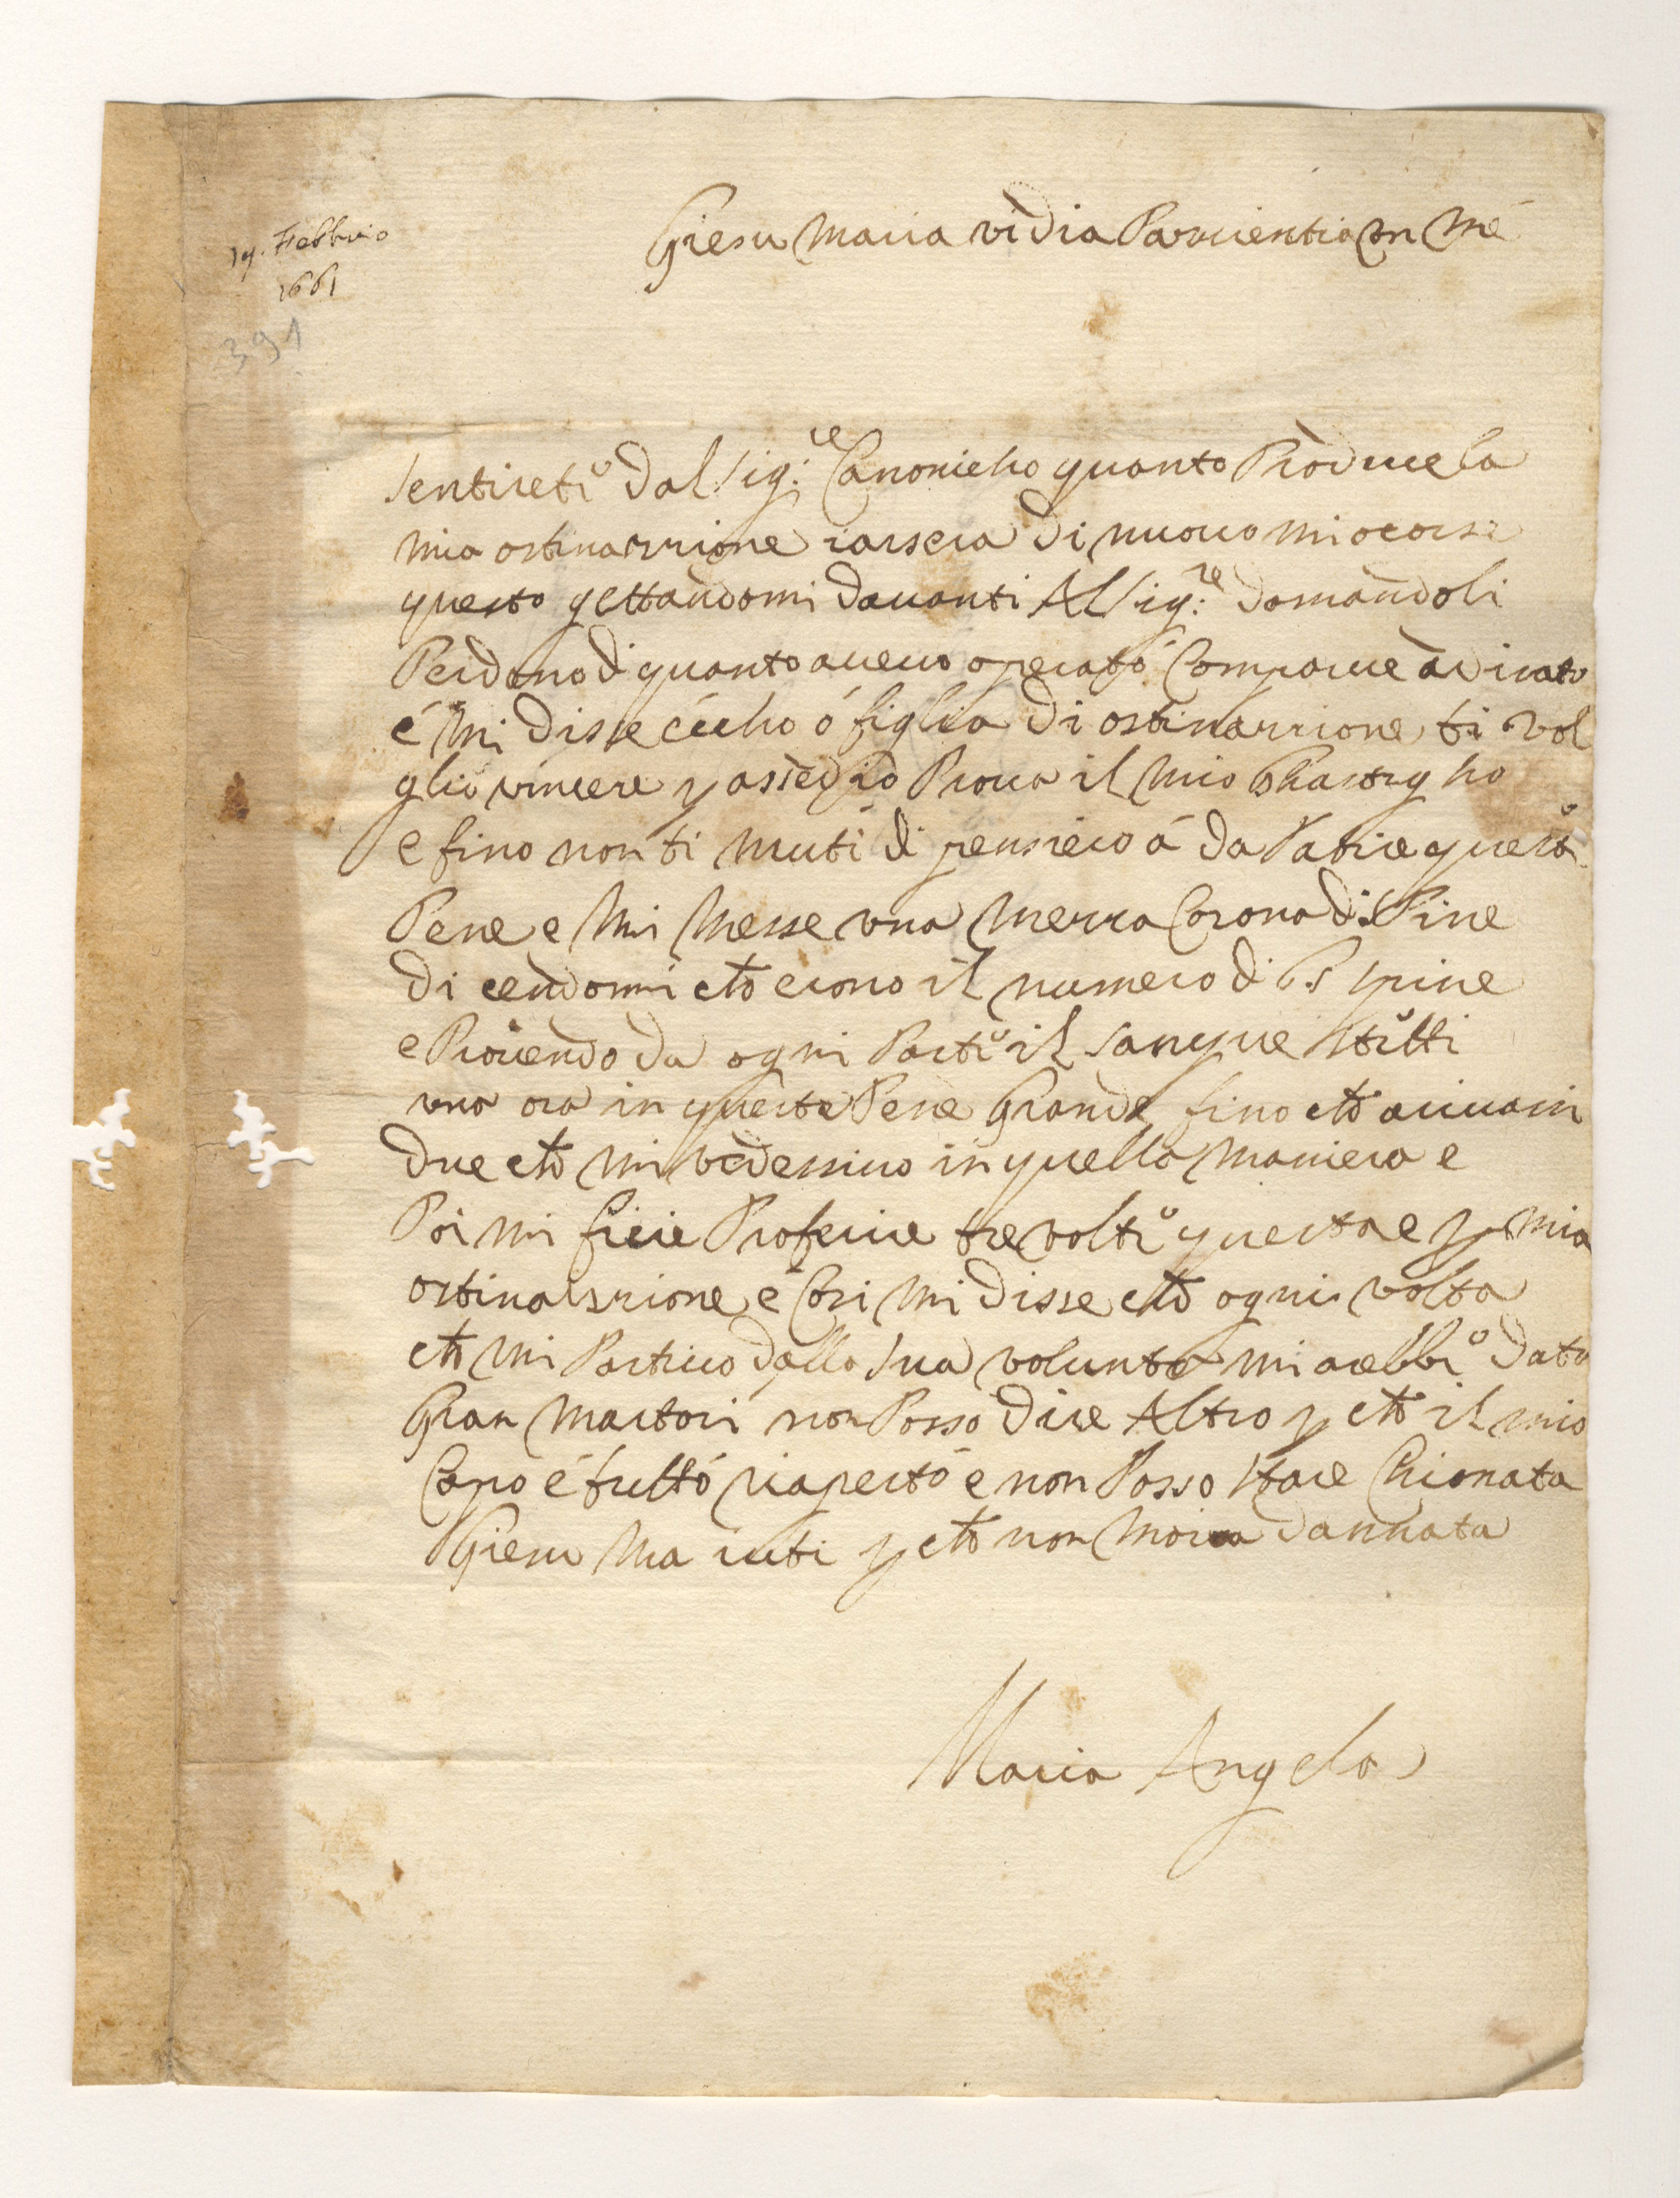 19. Febbraio
1661
391
Giesu Maria vi dia Pazzientia con me
Sentirete dal Sig:re Canonicho quanto Produce la
mia ostinazzione iarsera di nuovo mi ocorse
questo gettandomi davanti Al Sig:re domandoli
Perdono di quanto avevo operato Comparve adirato
é mi disse cecho ó figlia di ostinazzione ti vol
glio vincere p assedio Prova il mio Ghastigho
e fino non ti muti di pensiero á da Patire queste
Pene e mi messe una mezza Corona di Spine
di cendomi che erono il numero di 65 spine
e Piovendo da ogni Parte il sangue stetti
una ora in queste Pene Grande fino che arivorn
due che mi vedessino in quella maniera e
Poi mi fecie Proferire tre volte questa e p mia
ostinazzione e Cosi mi disse che ogni volta
che mi Partivo dalla sua volunta mi arebbe dato
Gran Martori non Posso dire Altro p che il mio
Capo é tutto riaperto e non Posso stare Chionata
Giesu ma iuti p che non moia dannata
Maria Angela